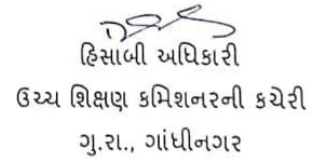 હિસાબી અધિકારી
ઉચ્ચ શિક્ષણ કમિશનરની કચેરી
ગુ.રા., ગાંધીનગર